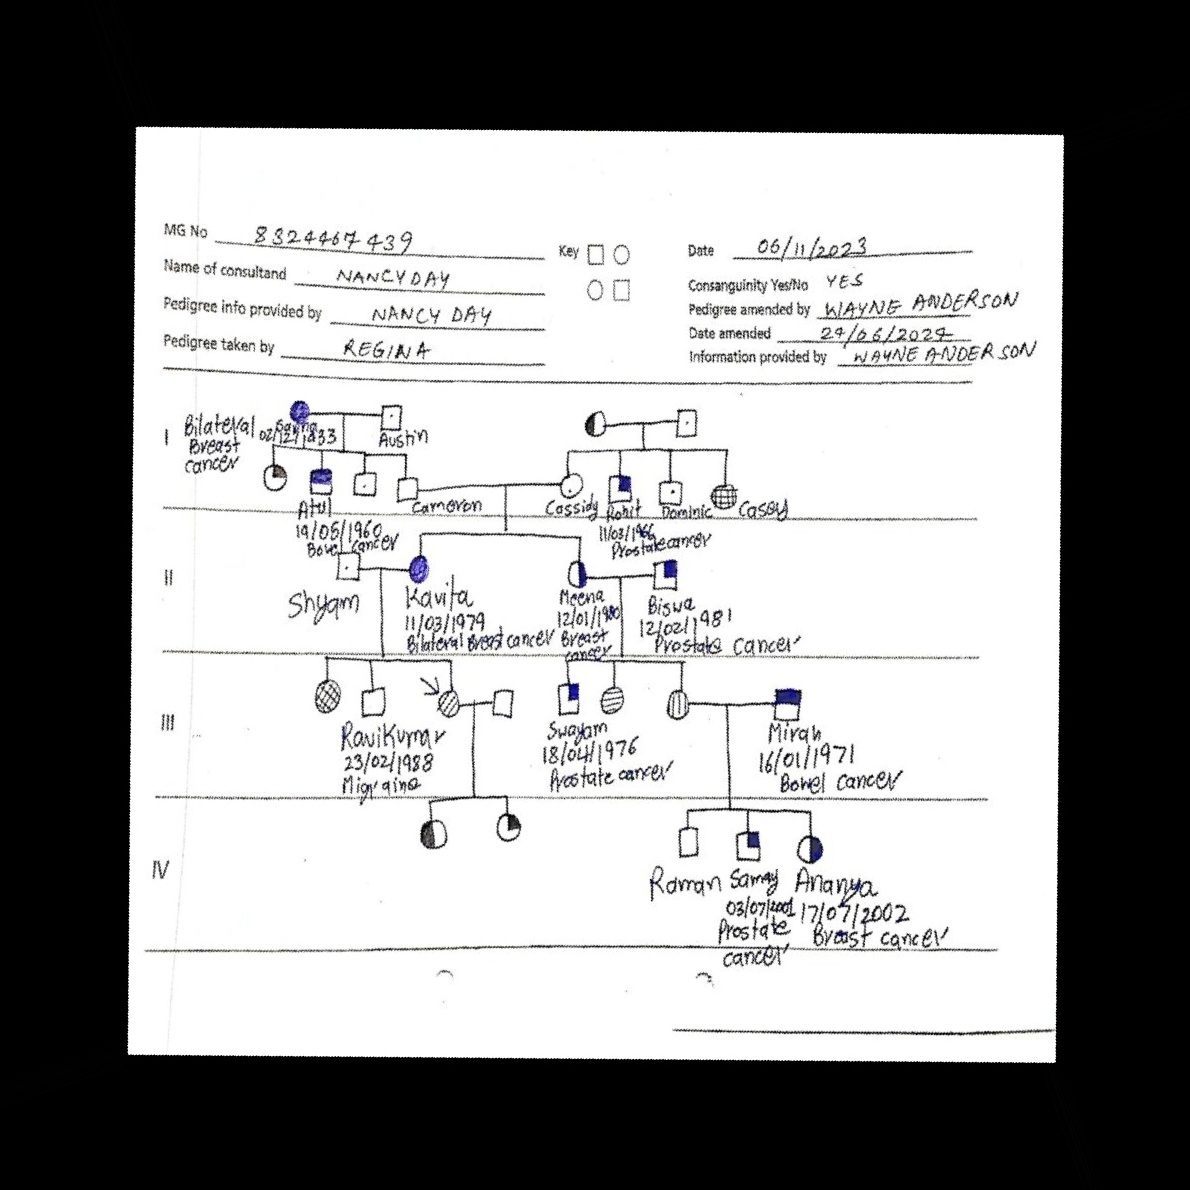 MG No 8324467439
Name of consultand NANCY DAY
Pedigree info provided by NANCY DAY
Pedigree taken by REGINA
Key
Date 06/11/2023
Consanguinity Yes/No YES
Pedigree amended by WAYNE ANDERSON
Date amended 24/06/2024
Information provided by WAYNE ANDERSON
I
Bilateral
Breast
cancer
Austin
Atul
19/05/1960
Bowel cancer
Cameron
Cassidy
Rohit
11/03/1966
Prostate cancer
Dominic
Casey
II
Shyam
Kavita
11/03/1979
Bilateral Breast cancer
Meena
12/01/1980
Breast
cancer
Biswa
12/02/1981
Prostate cancer
III
RaviKumar
23/02/1988
Migraine
Swayam
18/04/1976
Prostate cancer
Mirah
16/01/1971
Bowel cancer
IV
Raman
Samay
03/07/2001
Prostate
cancer
Ananya
17/07/2002
Breast cancer